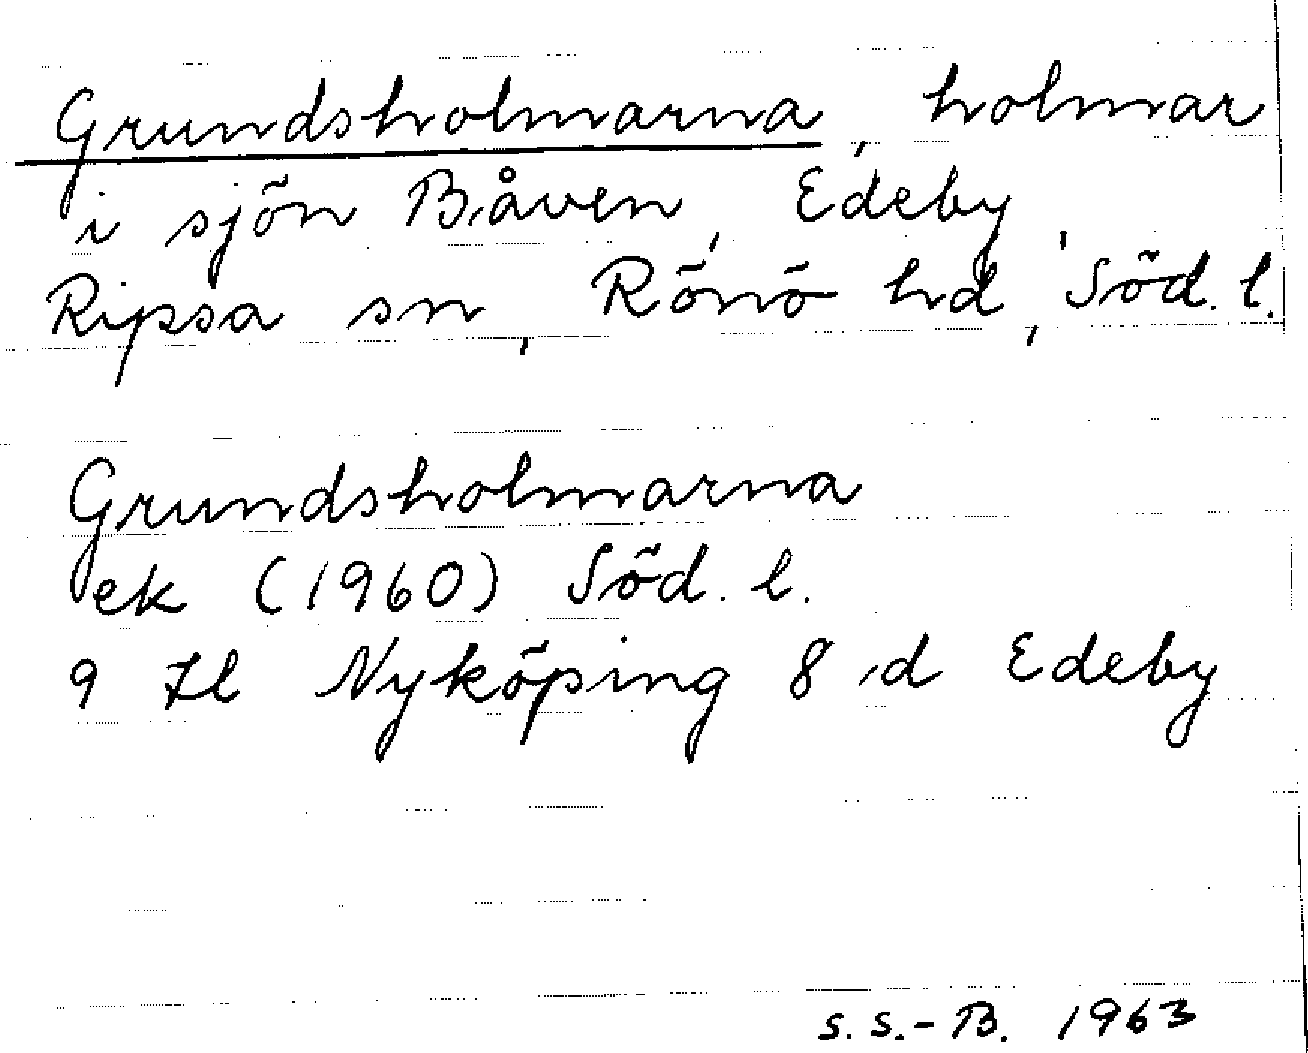 Grundsholmarna, holmar
i sjön Båven, Edeby,
Ripsa sn, Rönö hd, Söd. l.
Grundsholmarna
ek (1960) Söd. l.
9 H Nyköping 8 d Edeby
S. S.-B. 1963